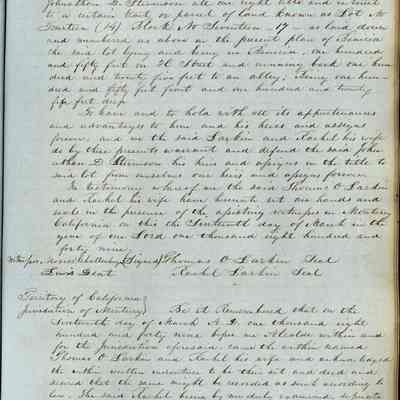 Johnathan D. Stevenson all our right title and interest
to a certain tract or parcel of land known as Lot No
Fourteen (14) Block No Seventeen - 17 - as laid down
and numbered as above on the present plan of Benicia
the said lot lying and being in Benicia, one hundred
and fifty feet on H Street and running back one hun
dred and twenty five feet to an alley; Being one hun-
dred and fifty feet front and one hundred and twenty
five feet deep
To have and to hold with all its appurtenances
and advantages to him and his heirs and assigns
forever and we the said Larkin and Rachel his wife
do by these presents warrant and defend the said John
athan D. Stevenson his heirs and assigns in the title to
said lot from ourselves our heirs and assigns forever
In testimony whereof we the said Thomas O Larkin
and Rachel his wife have hereunto set our hands and
seals in the presence of the assisting witnesses in Monterey
California on this the Sixteenth day of March in the
year of our Lord one thousand eight hundred and
forty nine
Witnesses (Signed) Thomas O Larkin Seal
Rachel Larkin Seal
Territory of California
Jurisdiction of Monterey Be it Remembered that on the
Sixteenth day of March A.D. one thousand eight
hundred and forty nine before me Alcalde within and
for the Jurisdiction aforesaid came the within named
Thomas O Larkin and Rachel his wife and acknowledged
the within written indenture to be their act and deed and
desired that the same might be recorded as such according to
law. The said Rachel being by me duly examined separate